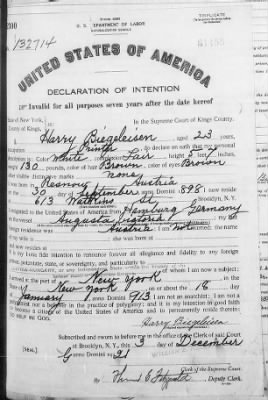 TRIPLICATE
U. S. DEPARTMENT OF LABOR
NATURALIZATION SERVICE
132714
UNITED STATES OF AMERICA
DECLARATION OF INTENTION
Invalid for all purposes seven years after the date hereof
State of New York,
County of Kings,
In the Supreme Court of Kings County.
Harry Biegeleisen aged 23 years,
occupation do declare on oath that my personal
description is: Color White, complexion Fair, height 5 feet inches,
130 pounds, color of hair Brown, color of eyes Brown
other visible distinctive marks None
Austria
on the 30 day of September 898; I now reside
613 Watkins St Brooklyn, N. Y.
I emigrated to the United States of America from Hamburg Germany
Augusta Victoria; my last
foreign residence was Austria
or wife was born at
and now resides at
It is my bona fide intention to renounce forever all allegiance and fidelity to any foreign
prince, potentate, state, or sovereignty, and particularly to
of whom I am now a subject;
I arrived at the port of New York
New York on or about the 18 day
January anno Domini 913; I am not an anarchist; I am not a
polygamist nor a believer in the practice of polygamy; and it is my intention in good faith
to become a citizen of the United States of America and to permanently reside therein:
SO HELP ME GOD.
Harry Biegeleisen
Subscribed and sworn to before me in the office of the Clerk of said Court
at Brooklyn, N. Y., this 3 day of December
[SEAL] anno Domini 21
Clerk of the Supreme Court.
By Deputy Clerk.